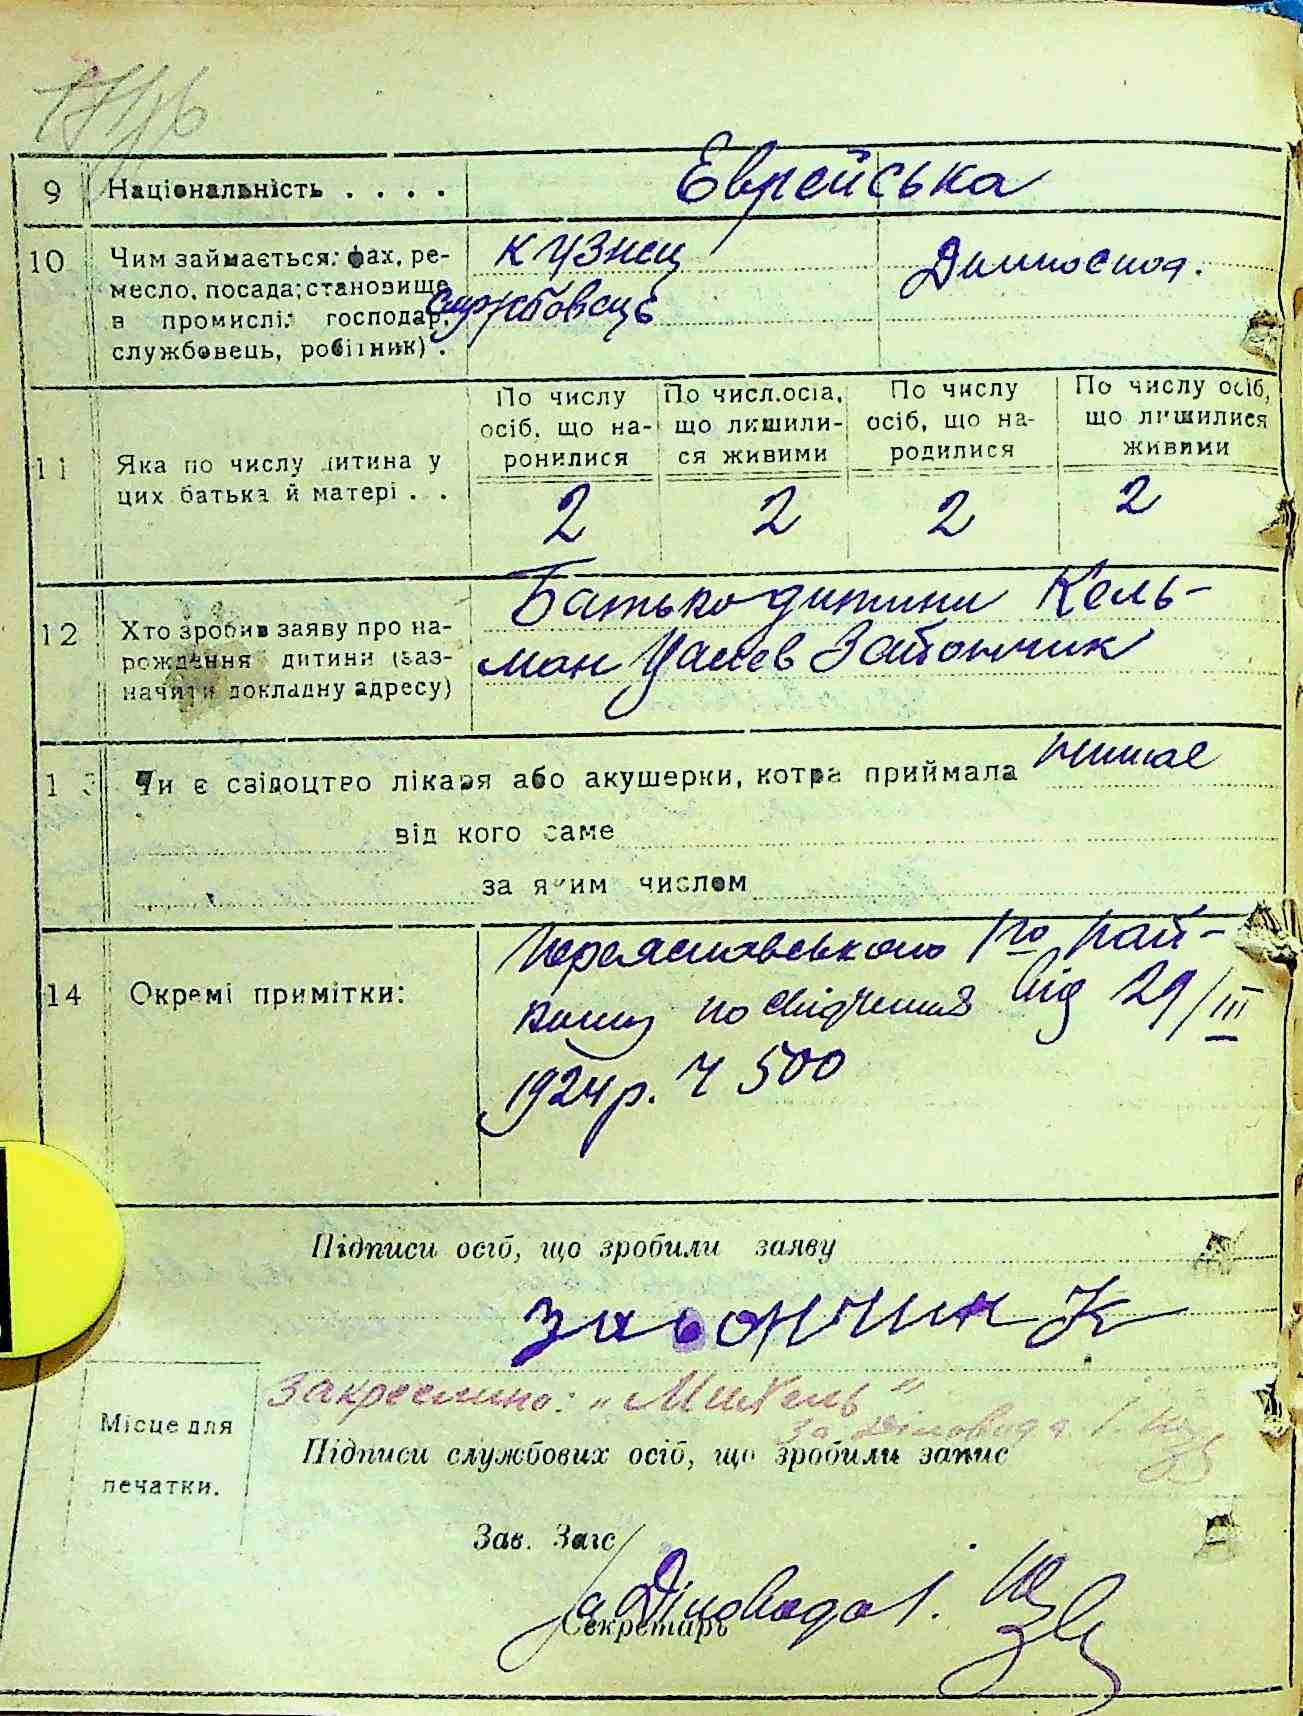 9 Національність . . . . Еврейська
10 Чим займається: фах, ре-
месло, посада; становище
в промислі: господар,
службовець, робітник) .
кузнец
службовець
Домоспод.
11 Яка по числу дитина у
цих батька й матері . .
По числу
осіб, що на-
ронилися
По числ.осіа,
що лишили-
ся живими
По числу
осіб, що на-
родилися
По числу осіб,
що лишилися
живими
2 2 2 2
12 Хто зробив заяву про на-
рождення дитини (заз-
начити докладну адресу)
Батько дитини Кель-
ман
13 Чи є свідоцтво лікаря або акушерки, котра приймала немае
від кого саме
за яким числом
14 Окремі примітки:
Переяславського 1го Рай-
посвідчення від 29/III
1924 р. Ч 500
Підписи осіб, що зробили заяву
Зайончик К
Закреслино: „Михель"
за Діловода
Місце для
печатки.
Підписи службових осіб, що зробили запис
Зав. Загс
за Діловода
Секретарь